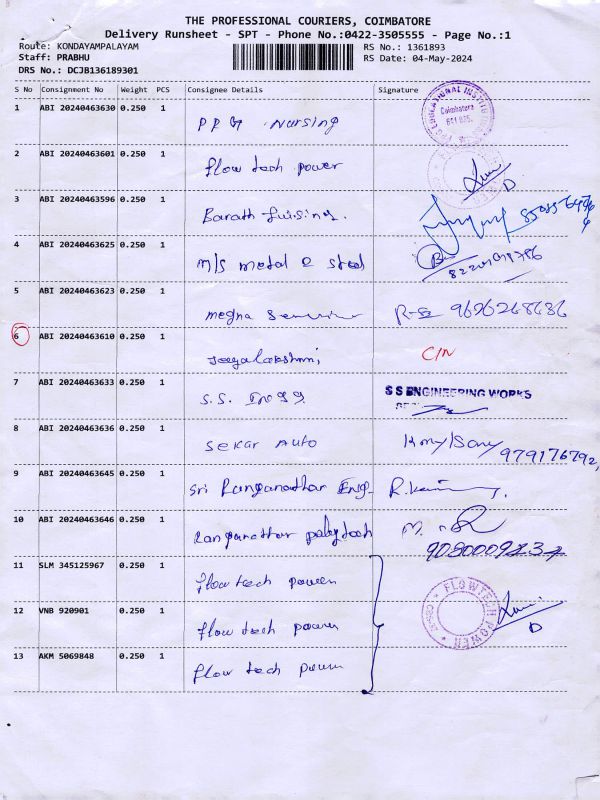 THE PROFESSIONAL COURIERS, COIMBATORE
Delivery Runsheet - SPT - Phone No.:0422-3505555 - Page No.:1
Route: KONDAYAMPALAYAM RS No.: 1361893
Staff: PRABHU RS Date: 04-May-2024
DRS No.: DCJB136189301
S No Consignment No Weight PCS Consignee Details Signature
1 ABI 20240463630 0.250 1
PPG Nursing
Coimbatore
641 035.
2 ABI 20240463601 0.250 1
flow tech power
D
3 ABI 20240463596 0.250 1
Barath
4 ABI 20240463625 0.250 1
M/S metal & steel
5 ABI 20240463623 0.250 1
megna R-S 9626268686
6 ABI 20240463610 0.250 1
Jeeyalakshmi, C/N
7 ABI 20240463633 0.250 1
S.S. Engg S S ENGINEERING WORKS
8 ABI 20240463636 0.250 1
Sekar Auto 979176792,
9 ABI 20240463645 0.250 1
Sri Ranganathar Eng.
10 ABI 20240463646 0.250 1
Ranganathar polytech
11 SLM 345125967 0.250 1
flow tech power
12 VNB 920901 0.250 1
flow tech power FLOWTECH POWER D
13 AKM 5069848 0.250 1
flow tech power